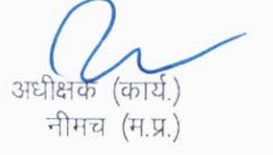 अधीक्षक (कार्य.)
नीमच (म.प्र.)